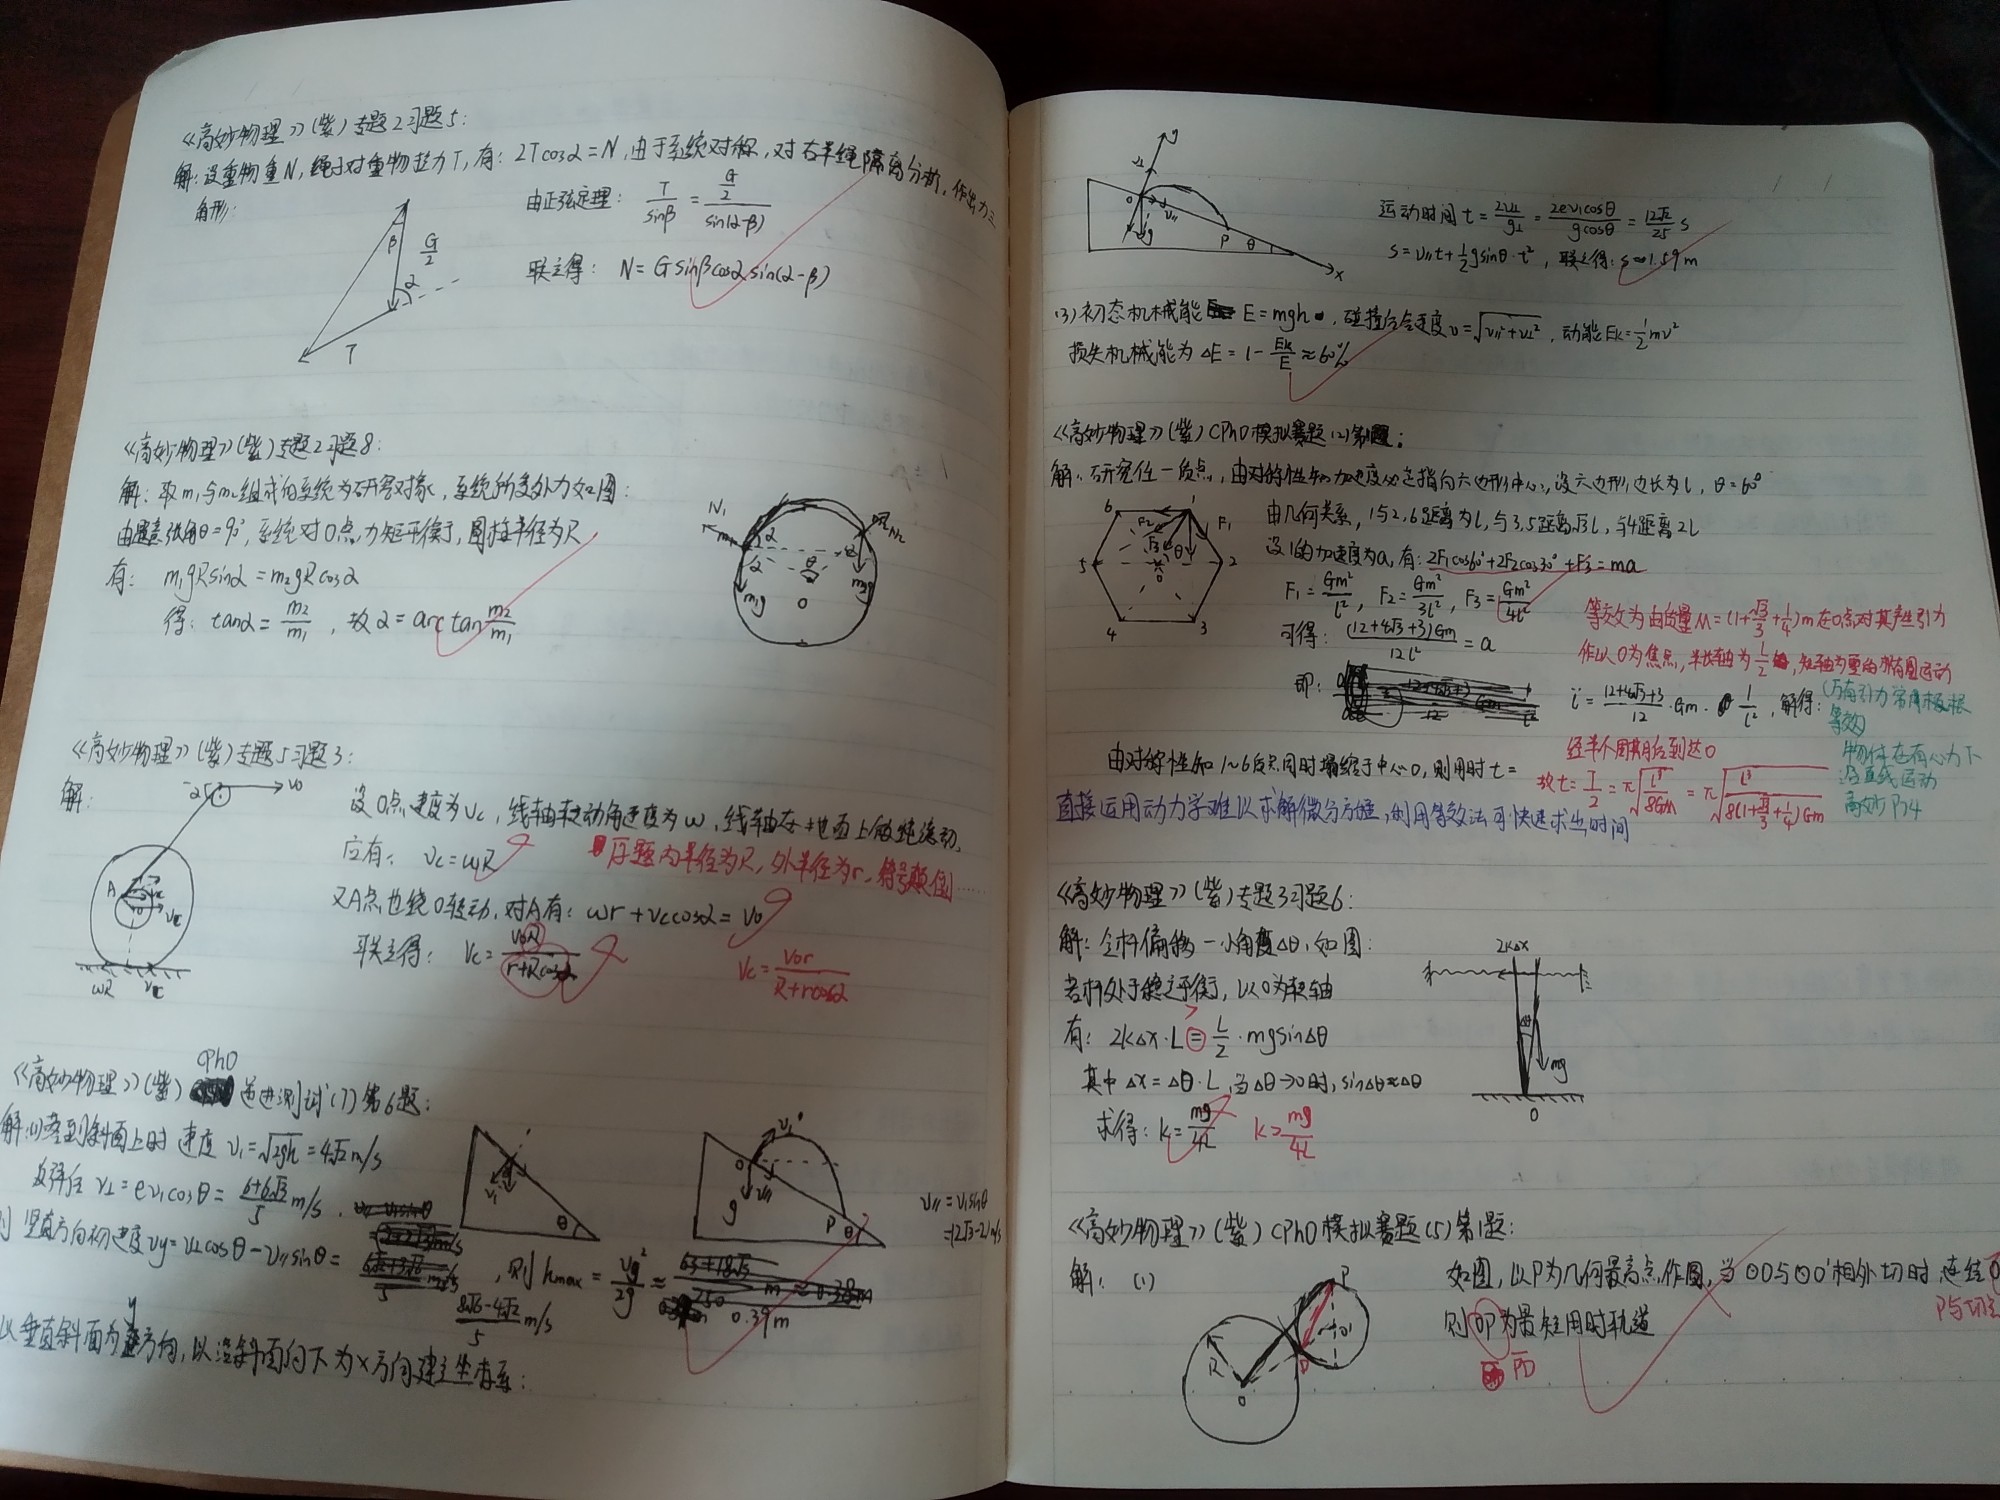 《高妙物理》(紫)专题2习题5:
解:设重物重N,绳子对重物拉力T,有: 2Tcosα=N,由于系统对称,对右半绳隔离分析,作出力三
角形:
由正弦定理: T/sinβ = (G/2)/sin(α-β)
β G/2
α
T
联立得: N=Gsinβcosαsin(α-β)
《高妙物理》(紫)专题2习题8:
解:取m₁与m₂组成的系统为研究对象,系统所受外力如图:
由题意张角θ=90°,系统对O点力矩平衡,圆柱半径为R
有: m₁gRsinα=m₂gRcosα
得: tanα=m₂/m₁,故α=arctan m₂/m₁
N₁ N₂ m₁ α α θ m₁g m₂g O
《高妙物理》(紫)专题5习题3:
解:
α v₀
A O
ωR
设O点速度为Vc,线轴转动角速度为ω,线轴在地面上做纯滚动,
应有: Vc=ωR
原题内半径为R,外半径为r,符号颠倒……
又A点也绕O转动,对A有: ωr+Vccosα=V₀
联立得: Vc=V₀R/(r+Rcosα)
Vc=V₀r/(R+rcosα)
CPhO
《高妙物理》(紫) 递进测试(7)第6题:
解:(1)落到斜面上时 速度 V₁=√2gh=4√2m/s
反弹后 V⊥=eV₁cosθ=(6+6√2)/5 m/s,
V∥=V₁sinθ
则 竖直方向初速度Vy=V⊥cosθ-V∥sinθ=
(8√6-4√2)/5 m/s
,则 hmax=Vy²/2g≈
0.39m
V₁ θ O V∥ g P θ
y
以垂直斜面为方向,以沿斜面向下为x方向建立坐标系:
y V⊥ O V∥ g P θ x
运动时间 t=2V⊥/g⊥=2eV₁cosθ/gcosθ=12√2/25 s
s=V∥t+½gsinθ·t²,联立得:s≈1.59m
(3)初态机械能 E=mgh,碰撞后合速度v=√(V∥²+V⊥²),动能Ek=½mv²
损失机械能为ΔE=1-Ek/E≈60%
《高妙物理》(紫)CPhO模拟赛题(2)第1题:
解:研究任一质点,由对称性知加速度必定指向六边形中心,设六边形边长为l,θ=60°
6 1 F₂ F₁ F₃ θ 5 2 O 4 3
由几何关系,1与2,6距离为l,与3,5距离√3l,与4距离2l
设1的加速度为a,有: 2F₁cos60°+2F₂cos30°+F₃=ma
F₁=Gm²/l²,F₂=Gm²/3l²,F₃=Gm²/4l²
可得: (12+4√3+3)Gm/12l²=a
等效为由质量M=(1+√3/3+1/4)m在O点对其产生引力
作以O为焦点,半长轴为l/2,短轴为零的椭圆运动
即:
l̈=(12+4√3+3)/12·Gm·1/l²,解得:
(万有引力常用极限
等效)
经半个周期后到达O
由对称性知1~6质点同时塌缩于中心O,则用时t=
故t=T/2=π√(l³/8GM)=π√(l³/8(1+√3/3+1/4)Gm)
物体在有心力下
沿直线运动
高妙P74
直接运用动力学难以求解微分方程,利用等效法可快速求出时间
《高妙物理》(紫)专题3习题6:
解:令杆偏移一小角度Δθ,如图:
若杆处于稳定平衡,以O为转轴
有: 2kΔx·L=L/2·mgsinΔθ
>
其中Δx=Δθ·L,当Δθ→0时,sinΔθ≈Δθ
求得: k=mg/4L
k>mg/4L
2kΔx Δθ mg O
《高妙物理》(紫)CPhO模拟赛题(5)第1题:
解: (1)
如图,以P为几何最高点作圆,当⊙O与⊙O'相外切时,连结
P与切点
则OP为最短用时轨道
PD
P O' D R O